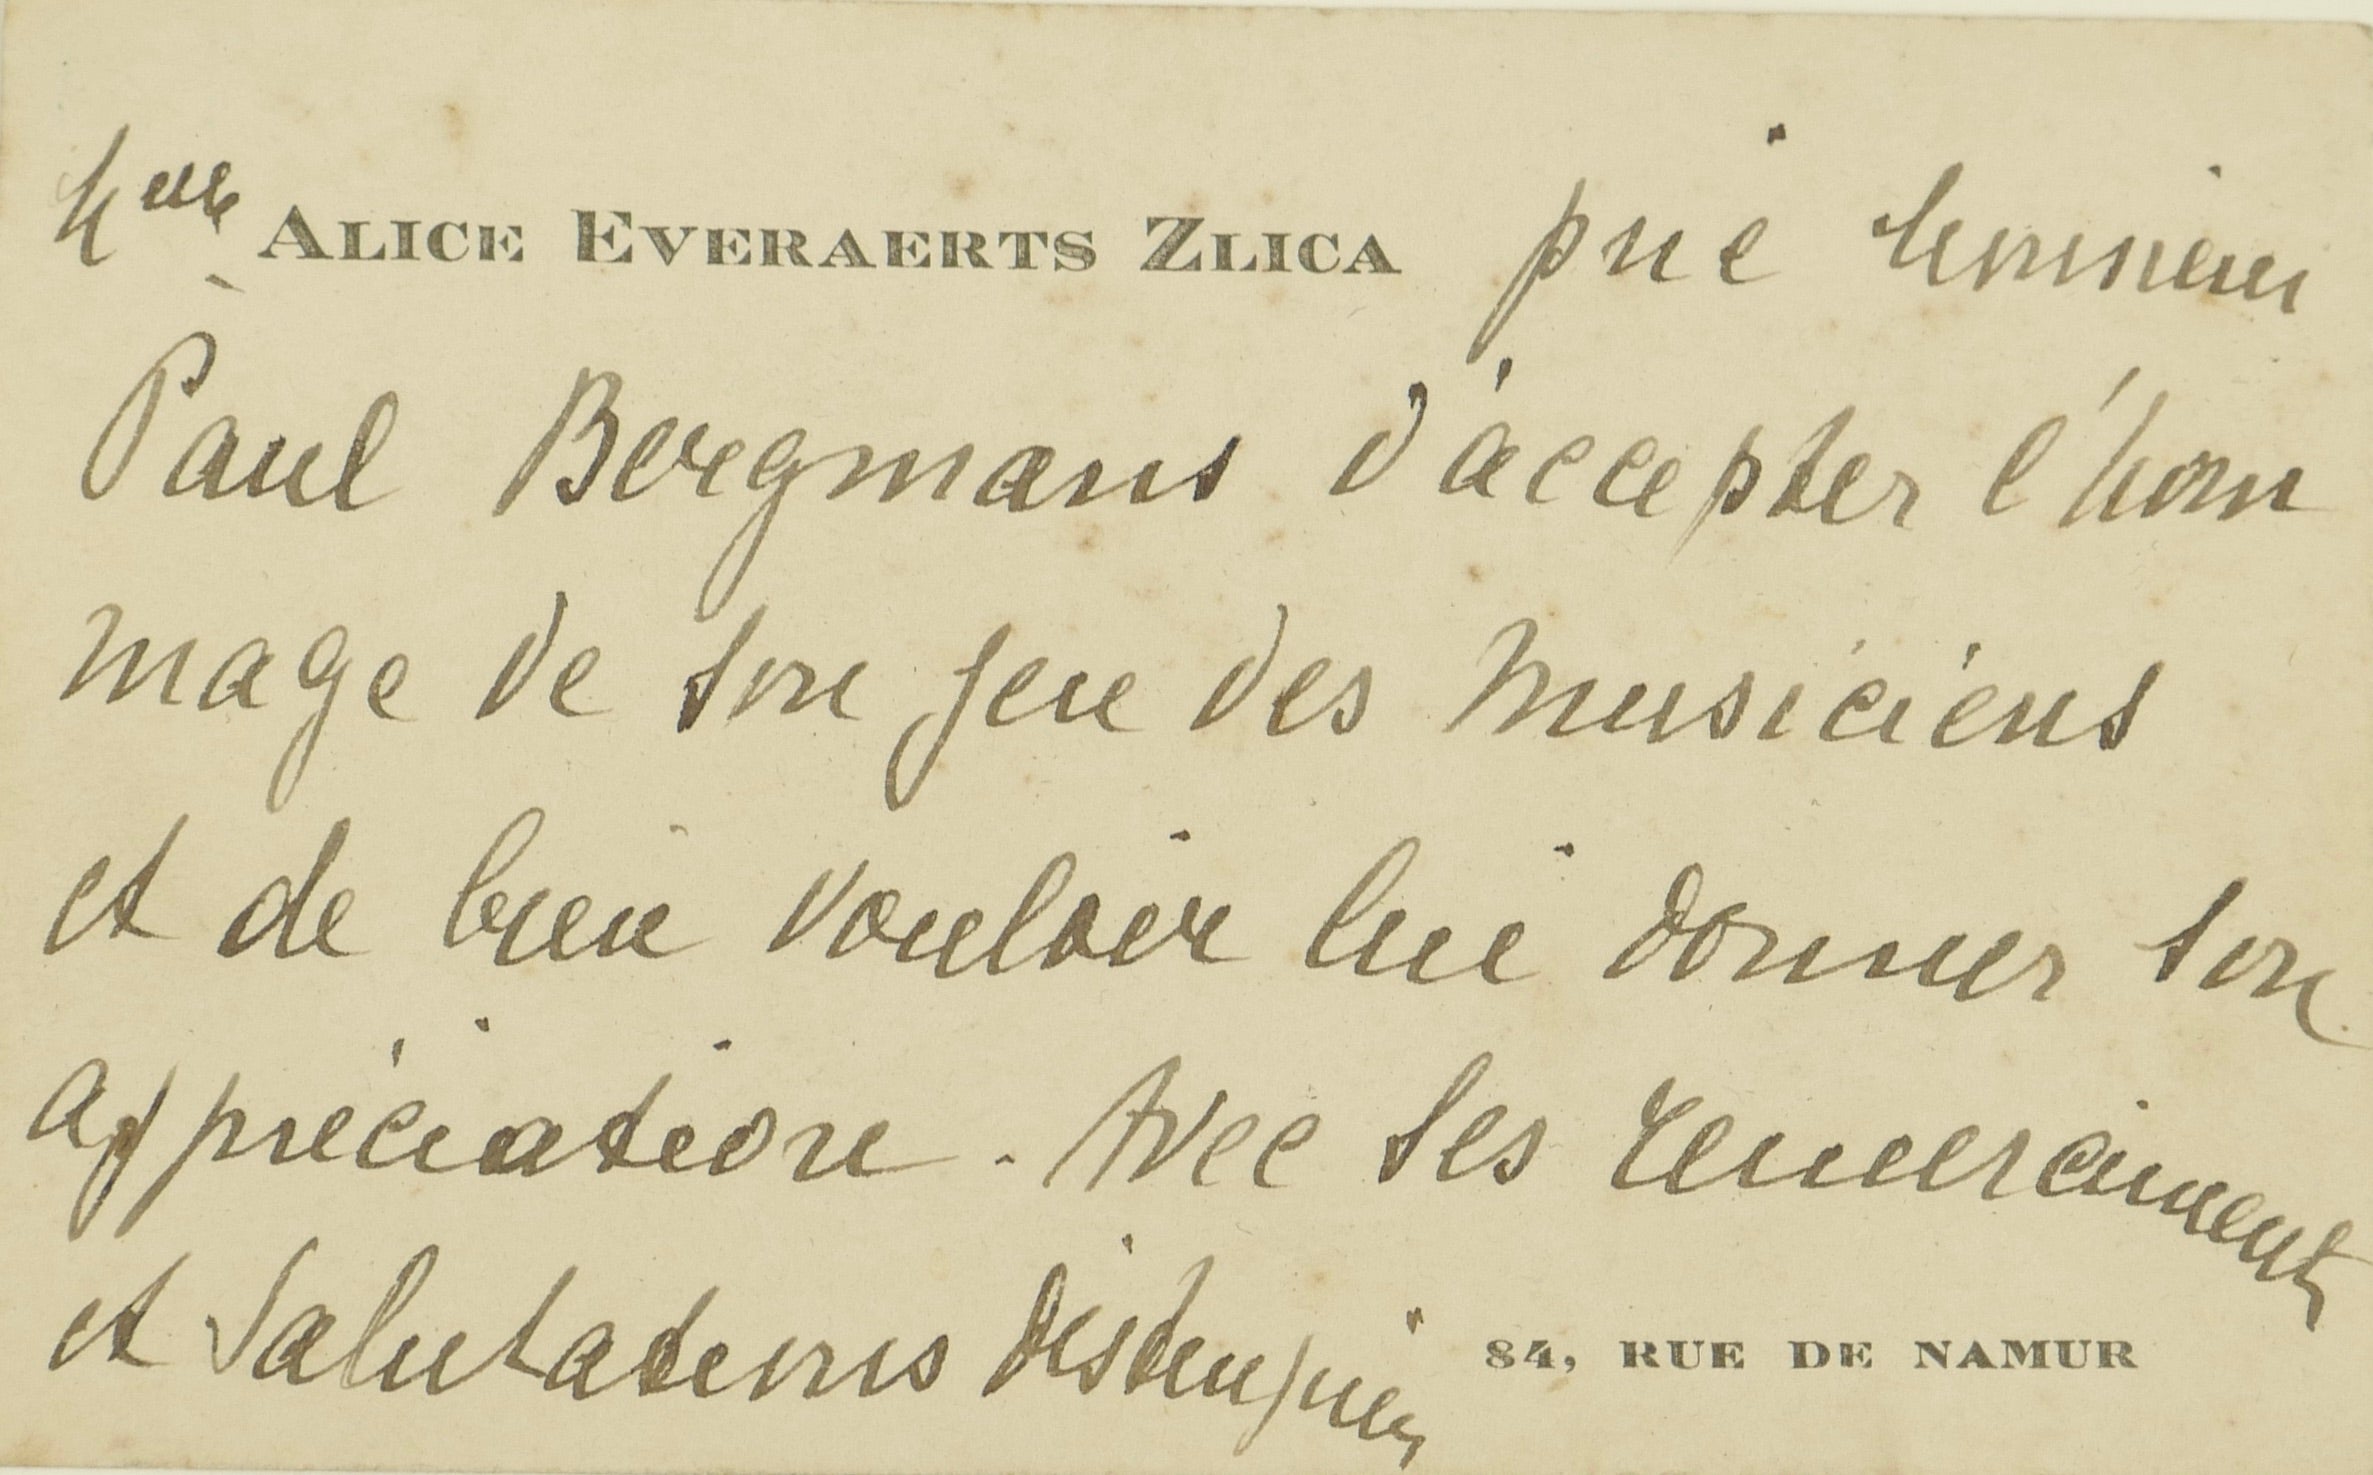 Melle ALICE EVERAERTS ZLICA prie Monsieur
Paul Bergmans d'accepter l'hom
mage de son jeu des Musiciens
et de bien vouloir lui donner son
appréciation. Avec ses remerciments
et Salutations distinguées
84, RUE DE NAMUR